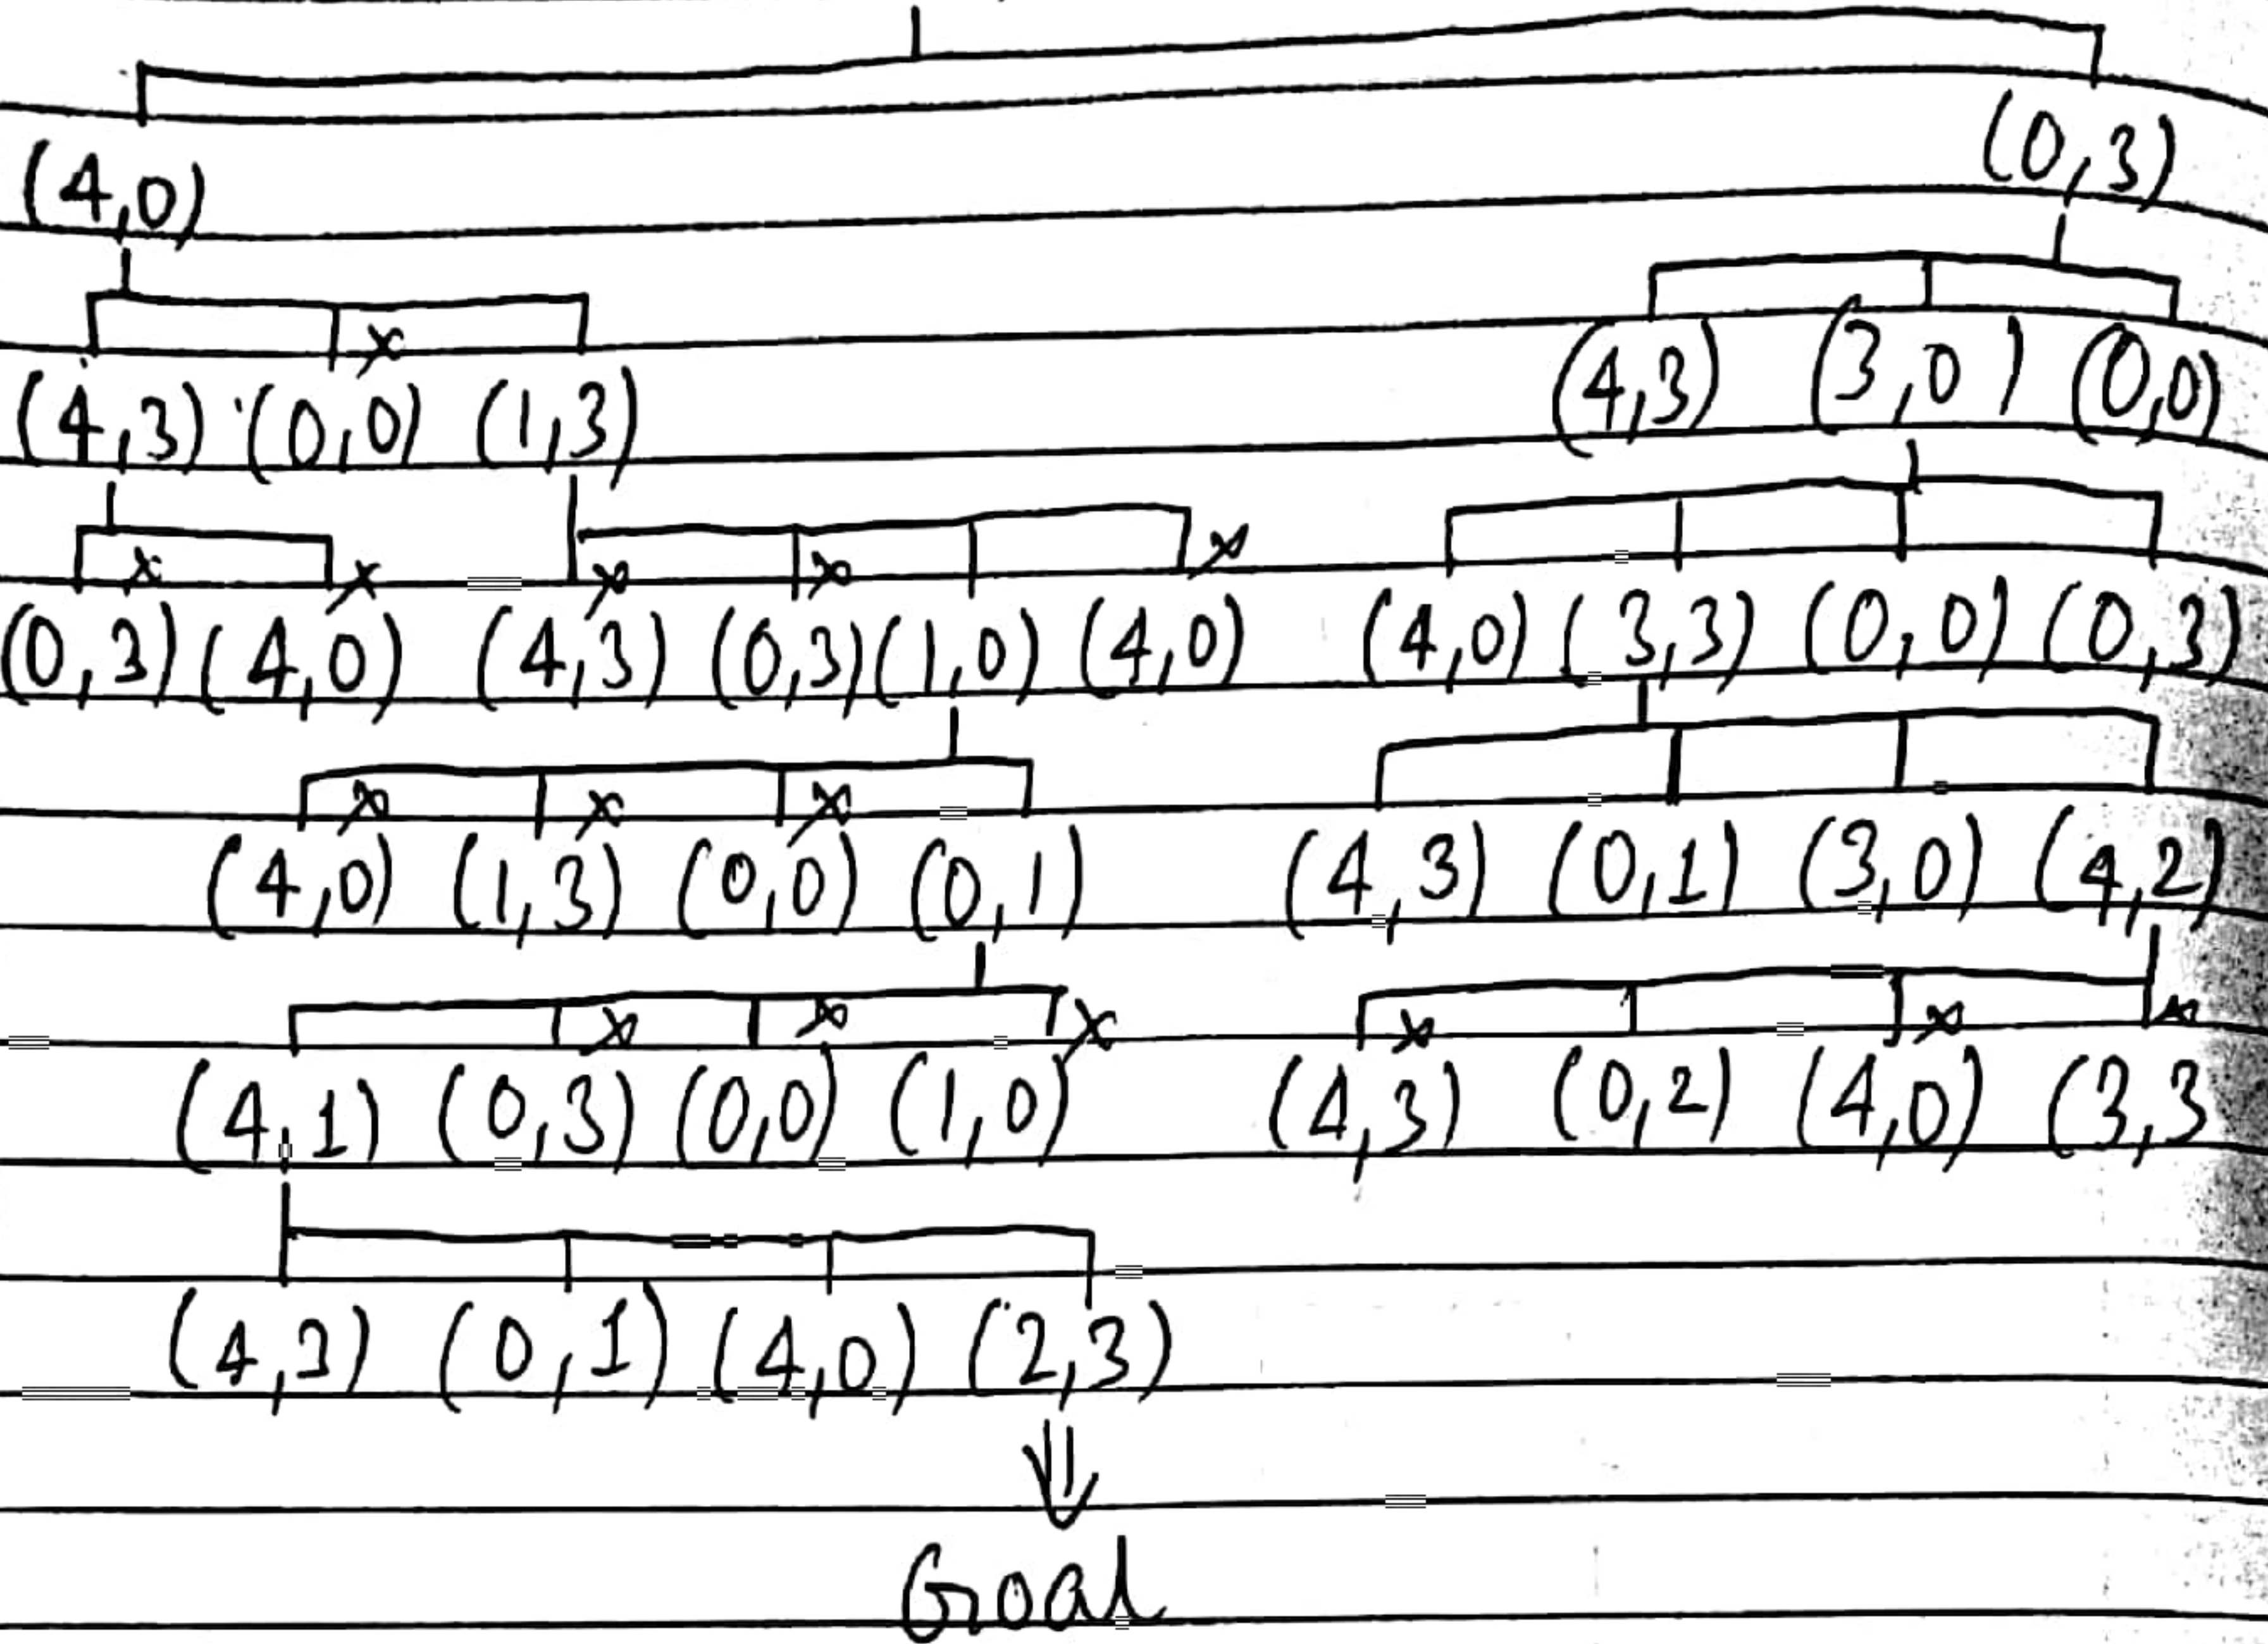 (4,0) (0,3)
x
(4,3) (0,0) (1,3) (4,3) (3,0) (0,0)
x x x x x
(0,3) (4,0) (4,3) (0,3) (1,0) (4,0) (4,0) (3,3) (0,0) (0,3)
x x x
(4,0) (1,3) (0,0) (0,1) (4,3) (0,1) (3,0) (4,2)
x x x x x x
(4,1) (0,3) (0,0) (1,0) (4,3) (0,2) (4,0) (3,3
(4,3) (0,1) (4,0) (2,3)
⇓
Goal